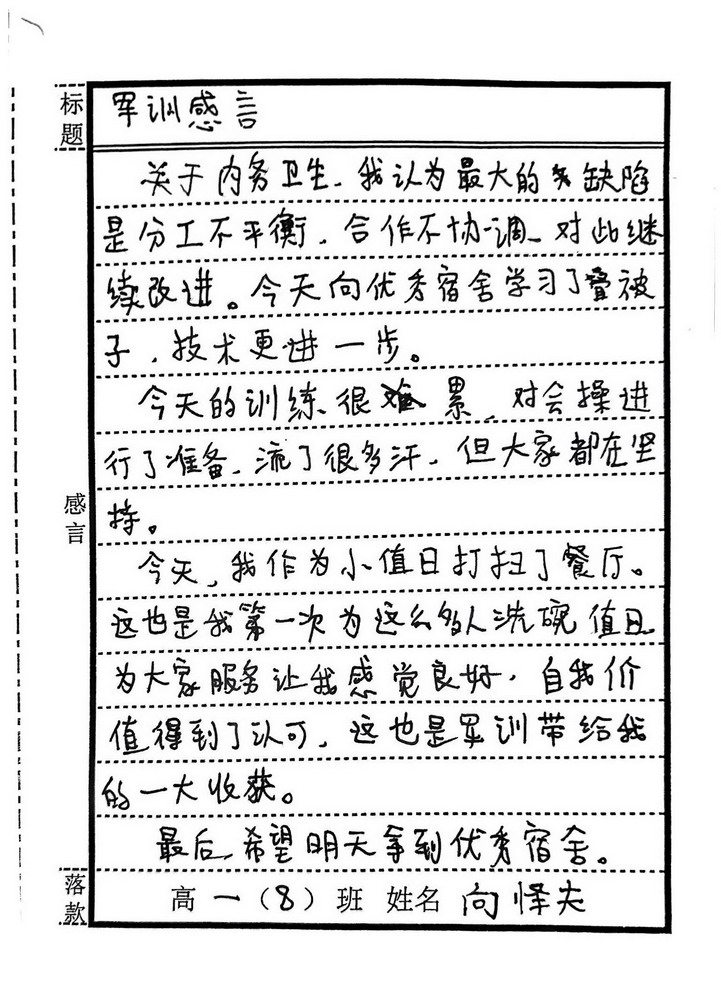 标题
军训感言
关于内务卫生,我认为最大的缺陷
是分工不平衡,合作不协调,对此继
续改进。今天向优秀宿舍学习了叠被
子,技术更进一步。
今天的训练很累,对会操进
行了准备,流了很多汗,但大家都在坚
持。
感言
今天,我作为小值日打扫了餐厅。
这也是我第一次为这么多人洗碗值日
为大家服务让我感觉良好,自我价
值得到了认可,这也是军训带给我
的一大收获。
最后,希望明天拿到优秀宿舍。
落款
高一(8)班 姓名 向怿夫